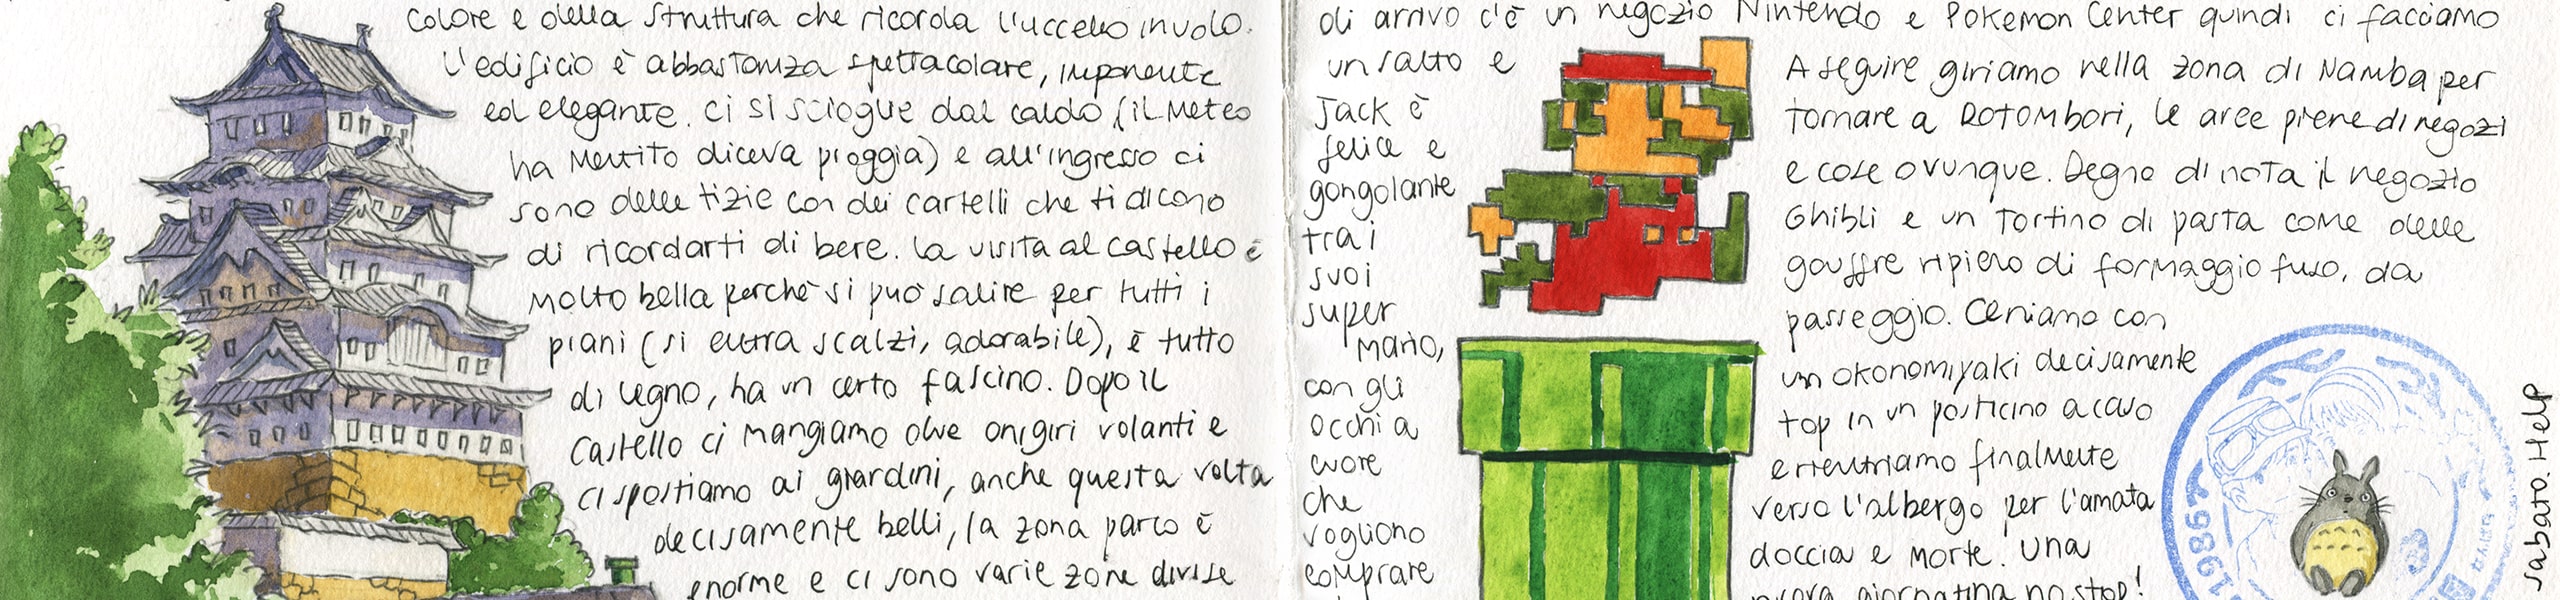 colore e della struttura che ricorda l'uccello in volo.
L'edificio è abbastanza spettacolare, imponente
ed elegante. Ci si scioglie dal caldo (il Meteo
ha Mentito diceva pioggia) e all'ingresso ci
sono delle tizie con dei cartelli che ti dicono
di ricordarti di bere. La visita al castello è
Molto bella perchè si può salire per tutti i
piani (si entra scalzi, adorabile), è tutto
di legno, ha un certo fascino. Dopo il
castello ci mangiamo due onigiri volanti e
ci spostiamo ai giardini, anche questa volta
decisamente belli, la zona parco è
enorme e ci sono varie zone divise
di arrivo c'è un negozio Nintendo e Pokemon Center quindi ci facciamo
un salto e
Jack è
felice e
gongolante
tra i
suoi
super
Mario,
con gli
occhi a
cuore
che
vogliono
comprare
A seguire giriamo nella zona di Namba per
tornare a DOTOMbori, le aree piene di negozi
e cose ovunque. Degno di nota il negozio
Ghibli e un Tortino di pasta come delle
gouffre ripieno di formaggio fuso, da
passeggio. Ceniamo con
un okonomiyaki decisamente
top in un posticino a caso
e rientriamo finalmente
verso l'albergo per l'amata
doccia e morte. Una
giornatina no stop!
1986
sabato. Help